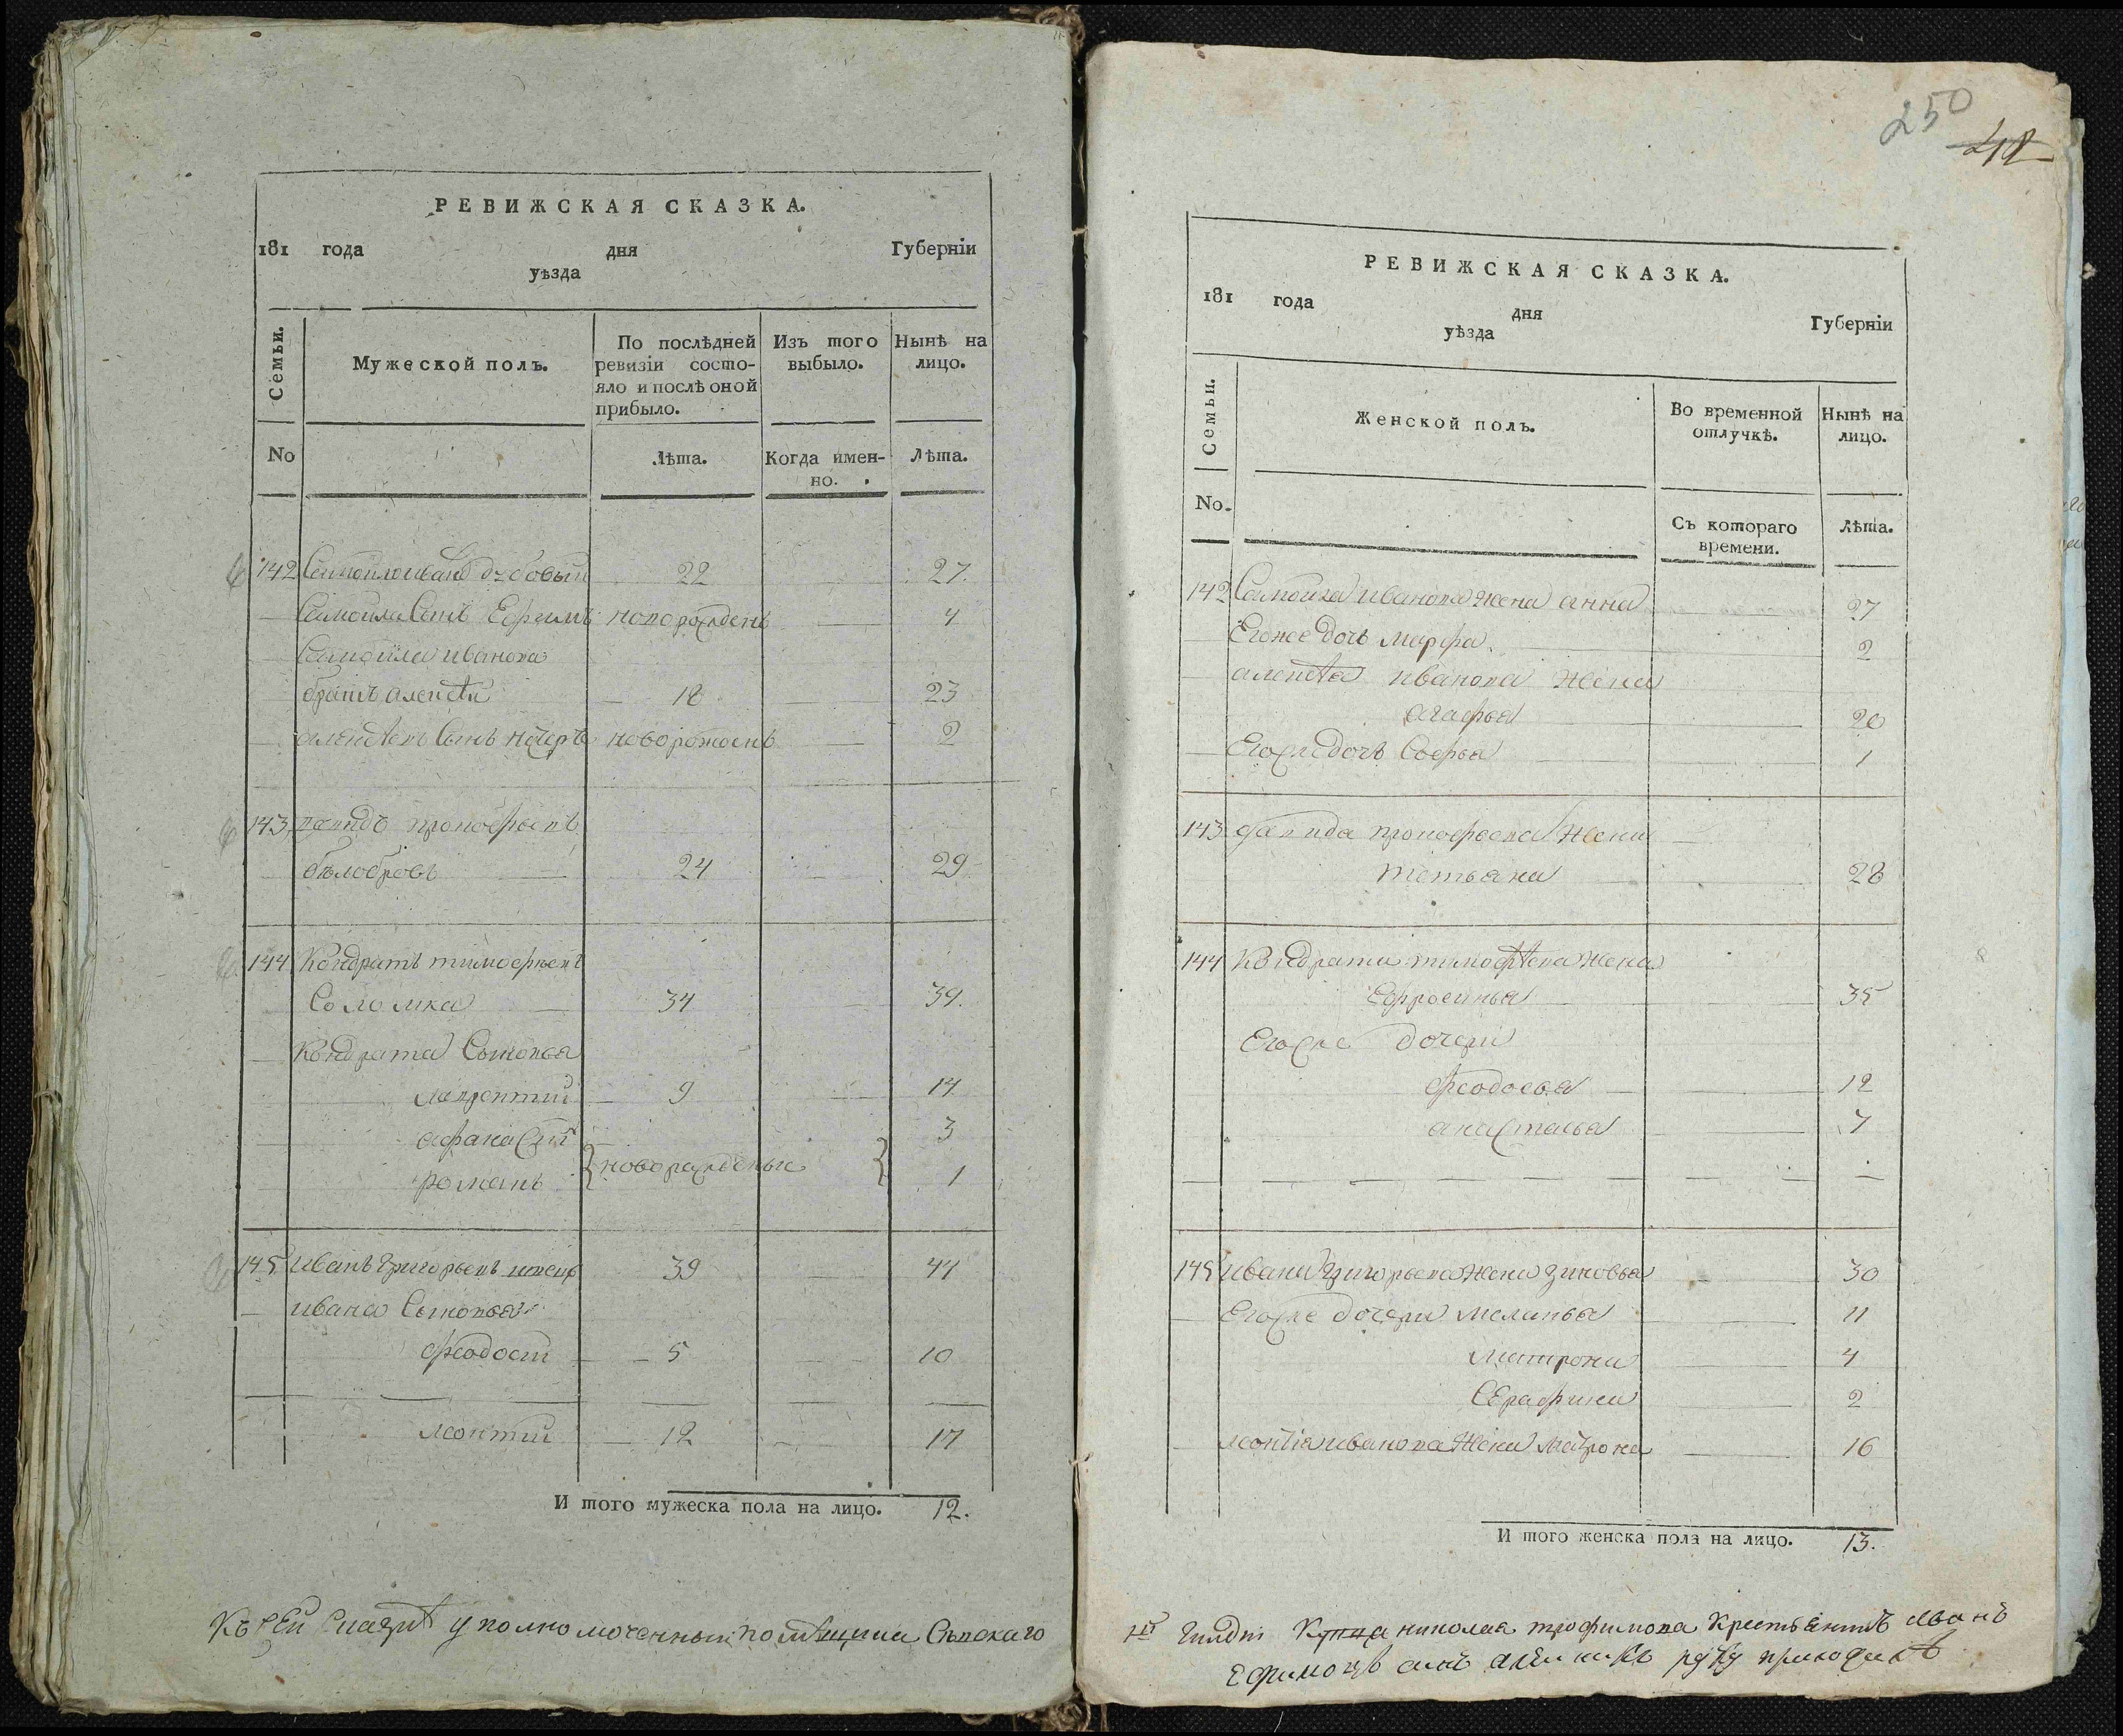 РЕВИЖСКАЯ СКАЗКА.
181 года дня Губернїи
уѣзда
Семьи.
Мужеской полъ.
По послѣдней ревизїи состо-
яло и послѣ оной
прибыло.
Изъ того
выбыло.
Нынѣ на
лицо.
No
Лѣта.
Когда имен-
но.
Лѣта.
142 Самойло Иванъ 22 27.
Самойла Сынъ Ефимъ новорожденъ 4
Самойла Иванова
братъ алексѣй 18 23
алексѣевъ Сынъ новорожденъ 2
143 давидъ прокофьевъ
бѣлобровъ 24 29
144 Кондратъ тимофѣевъ
Соломка 34 39.
Кондрата Сыновья
лаврентий 9 14
афанасий 3
романъ новорожденые 1
145 Иванъ Григорьевъ 39 44
ивана Сыновья
феодосий 5 10
леонтий 12 17
И того мужеска пола на лицо. 12.
Къ сей Сказкѣ уполномоченный помѣщика
250
РЕВИЖСКАЯ СКАЗКА.
181 года дня Губернїи
уѣзда
Семьи.
Женской полъ.
Во временной
отлучкѣ.
Нынѣ на
лицо.
No.
Съ котораго
времени.
Лѣта.
142 Самойла Иванова жена анна 27
Егоже дочь марфа. 2
алексѣя иванова жена
агафья 20
Егоже дочь Софья 1
143 давида прокофьева жена
татьяна 28
144 Кондрата тимофѣева жена
Ефросинья 35
Егоже дочери
феодосья 12
анастасья 7
145 ивана Григорьева жена зиновья 30
Егоже дочери меланья 11
матрона 4
Серафима 2
леонтия иванова жена матрона 16
И того женска пола на лицо. 13.
гилдии Купца николая трофимова Крестьянинъ иванъ
Ефимовъ сынъ руку приложилъ